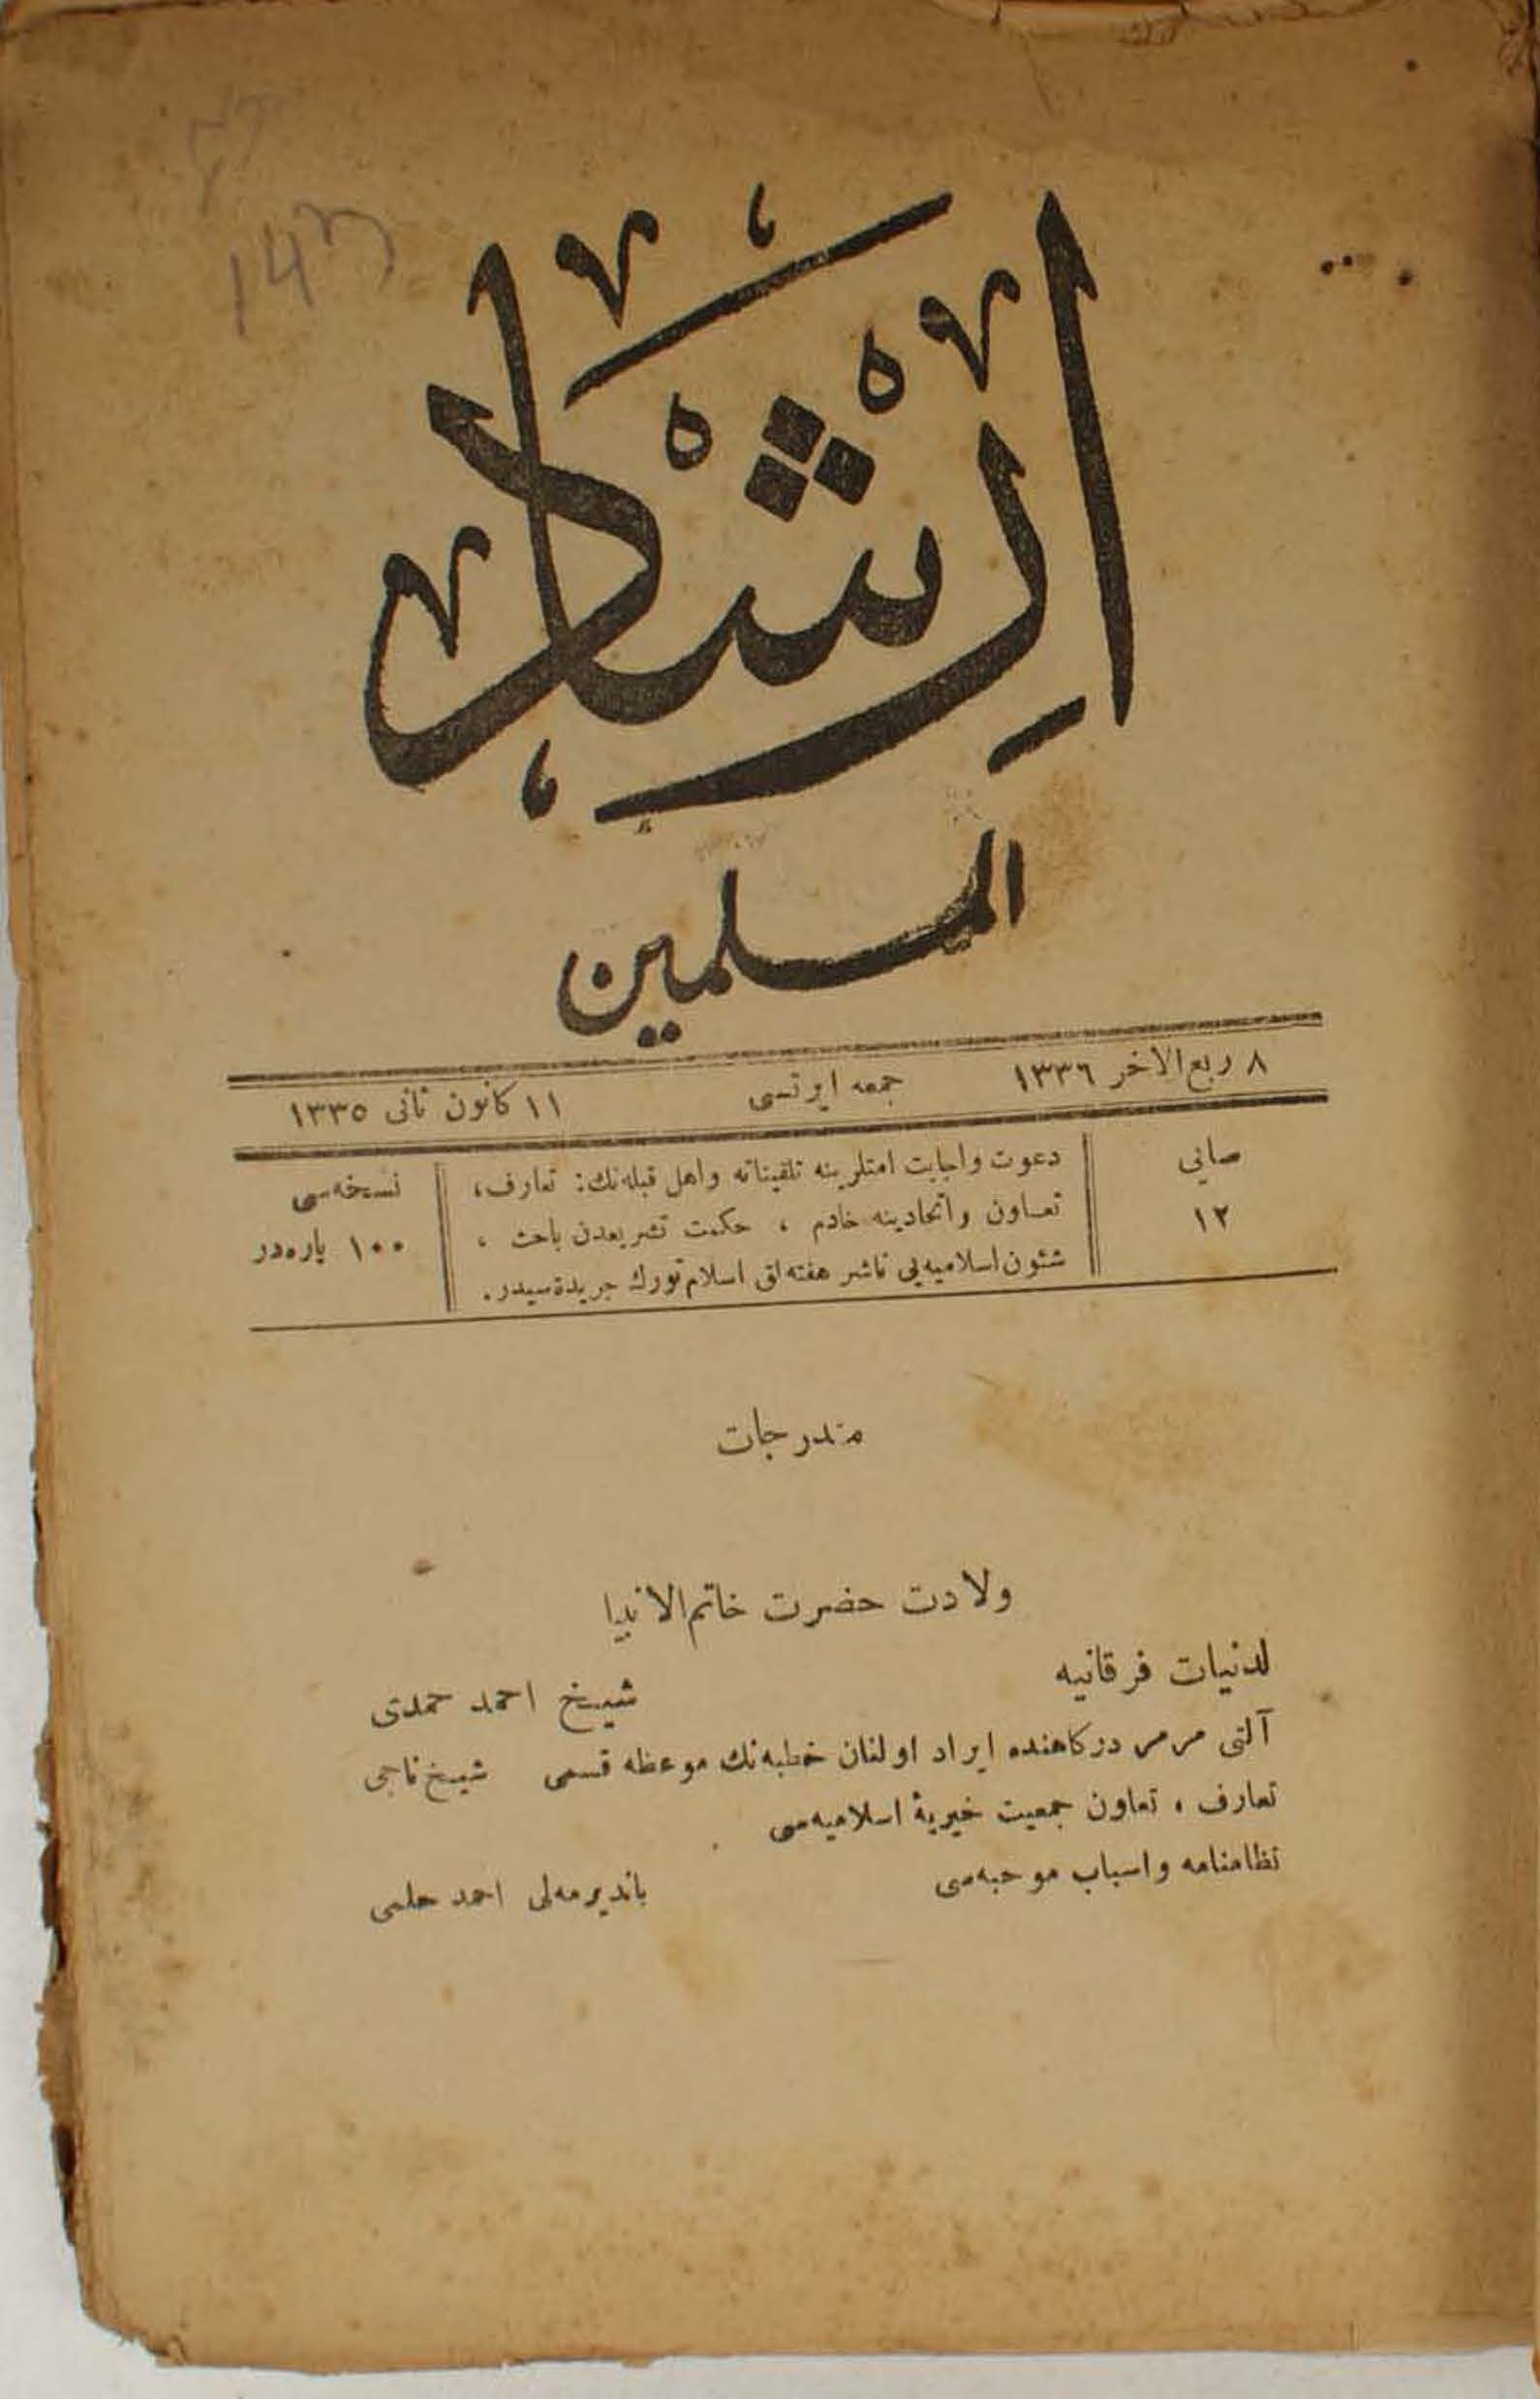 ارشاد
المسلمين
٨ ربيع الاخر ١٣٣٦ جمعه ايرتسى ١١ كانون ثانى ١٣٣٥
صانى
١٢
دعوت واجابت امتلرينه تلقيناته واهل قبله‌نك: تعارف،
تعاون واتحادينه خادم ، حكمت تشريعدن باحث ،
شئون اسلاميه‌يى ناشر هفته‌لق اسلام تورك جريدهٔ‌سيدر.
نسخه‌سى
١٠٠ پاره‌در
مندرجات
ولادت حضرت خاتم الانبيا
لدنيات فرقانيه شيخ احمد حمدى
آلتى مرمر دركاهنده ايراد اولنان خطبه‌نك موعظه قسمى شيخ ناجى
تعارف ، تعاون جمعيت خيريهٔ اسلاميه‌سى
نظامنامه واسباب موجبه‌سى باندیرمه‌لى احمد حلمى